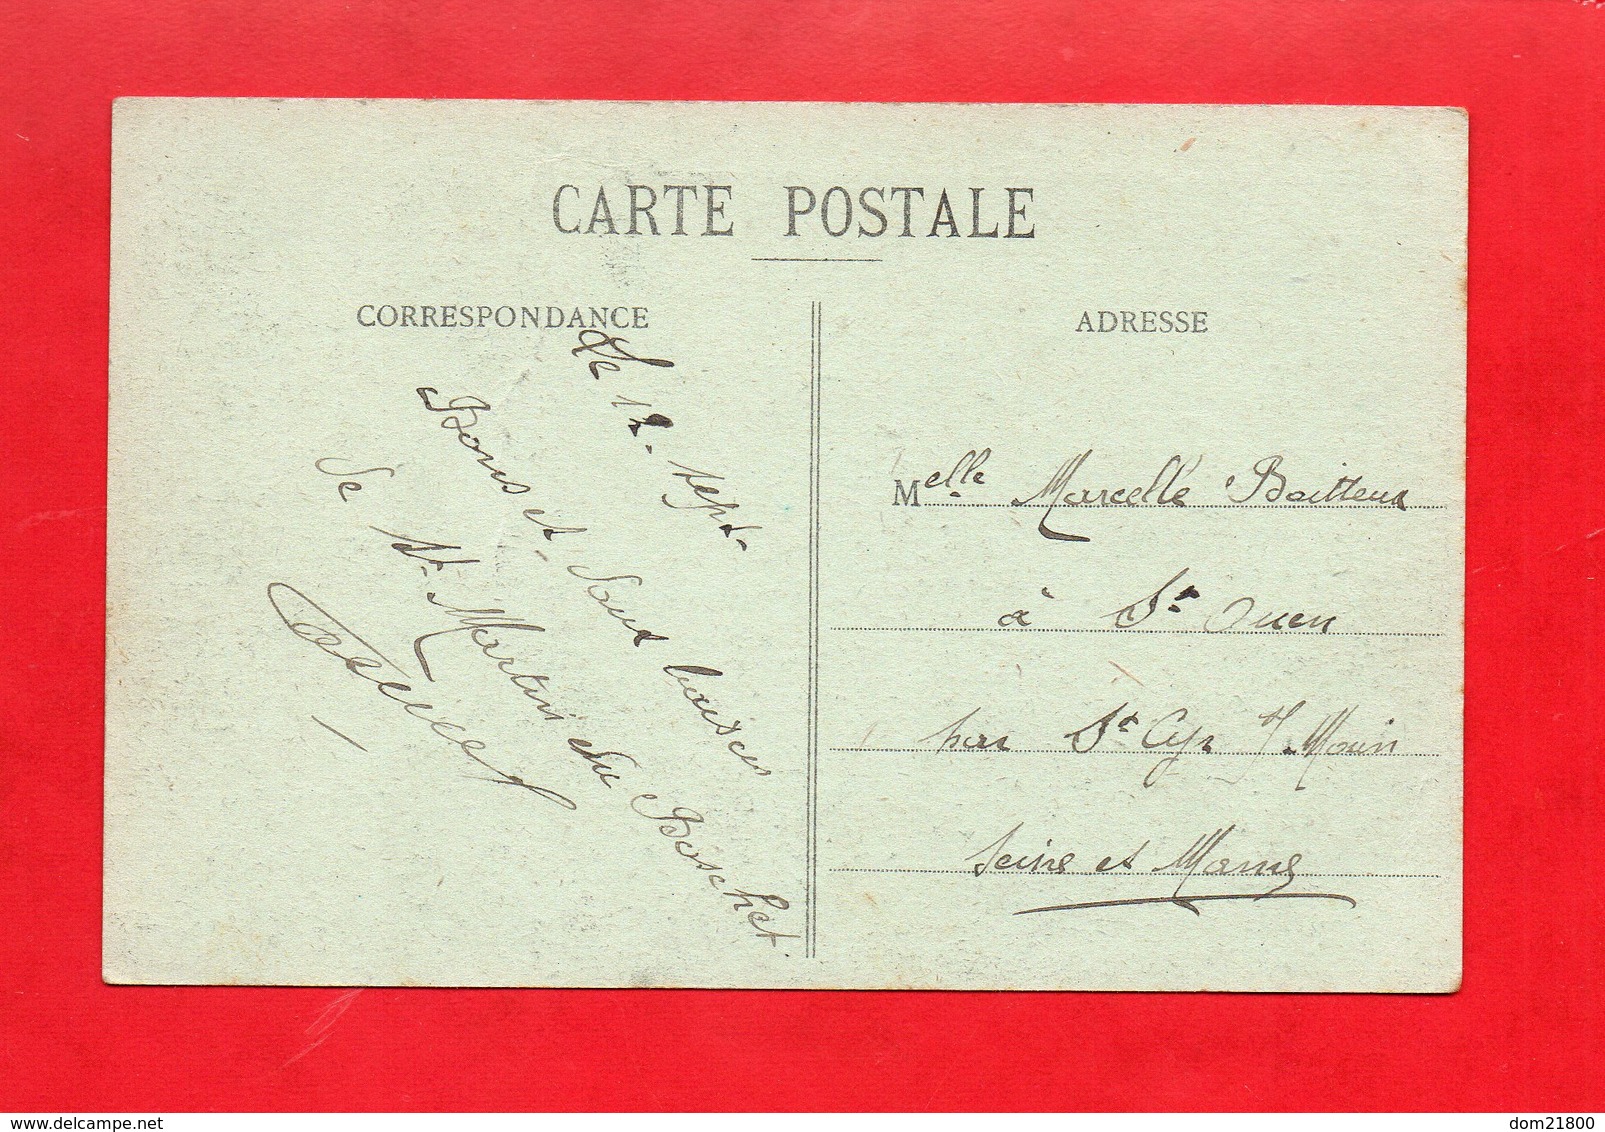 CARTE POSTALE
CORRESPONDANCE
ADRESSE
Le 12 sept.
Bons et doux baisers
de St. Martin du Boschet
Melle Marcelle Boitteux
à St Ouen
par St Cyr s/ Morin
Seine et Marne
delcampe.net
dom21800